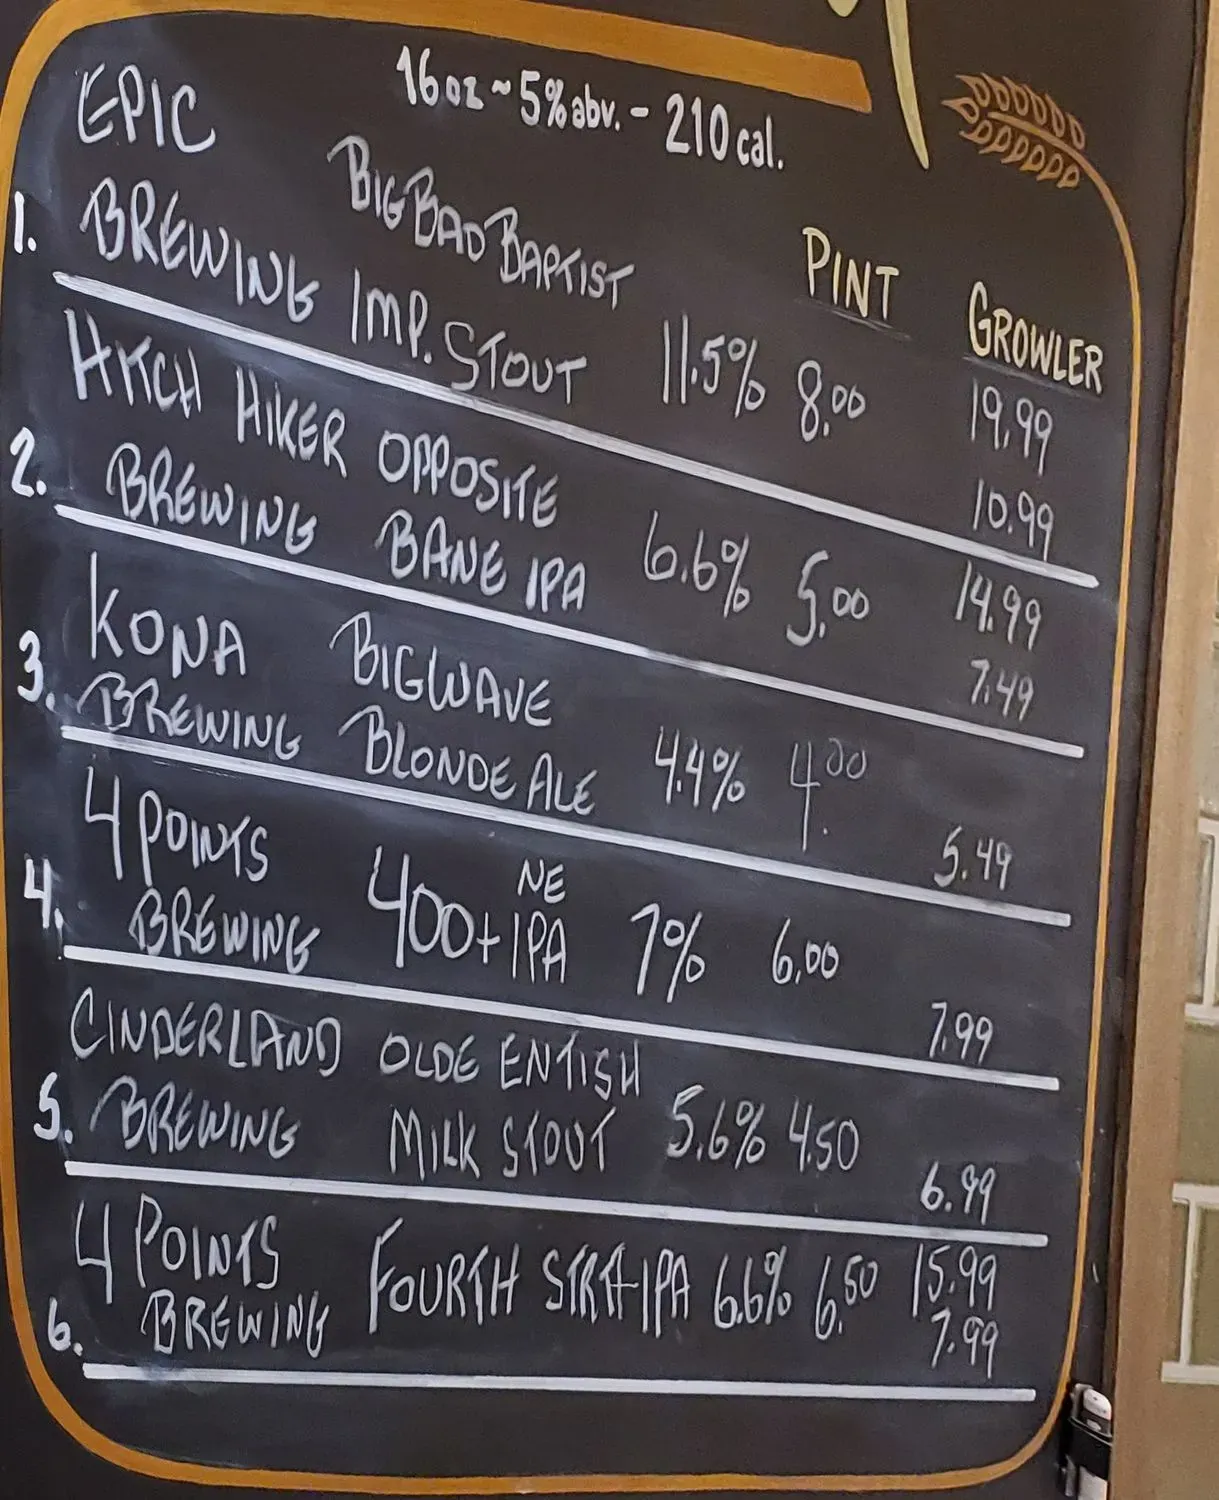 16oz ~ 5% abv. - 210 cal.
PINT GROWLER
1. EPIC BIG BAD BAPTIST
BREWING IMP. STOUT 11.5% 8.00 19.99
10.99
2. HITCH HIKER OPPOSITE
BREWING BANE IPA 6.6% 5.00 14.99
7.49
3. KONA BIG WAVE
BREWING BLONDE ALE 4.4% 4.00
5.49
4. 4 POINTS NE
BREWING 400+ IPA 7% 6.00
7.99
5. CINDERLAND OLDE ENTISH
BREWING MILK STOUT 5.6% 4.50
6.99
6. 4 POINTS FOURTH STR+IPA 6.6% 6.50 15.99
BREWING 7.99